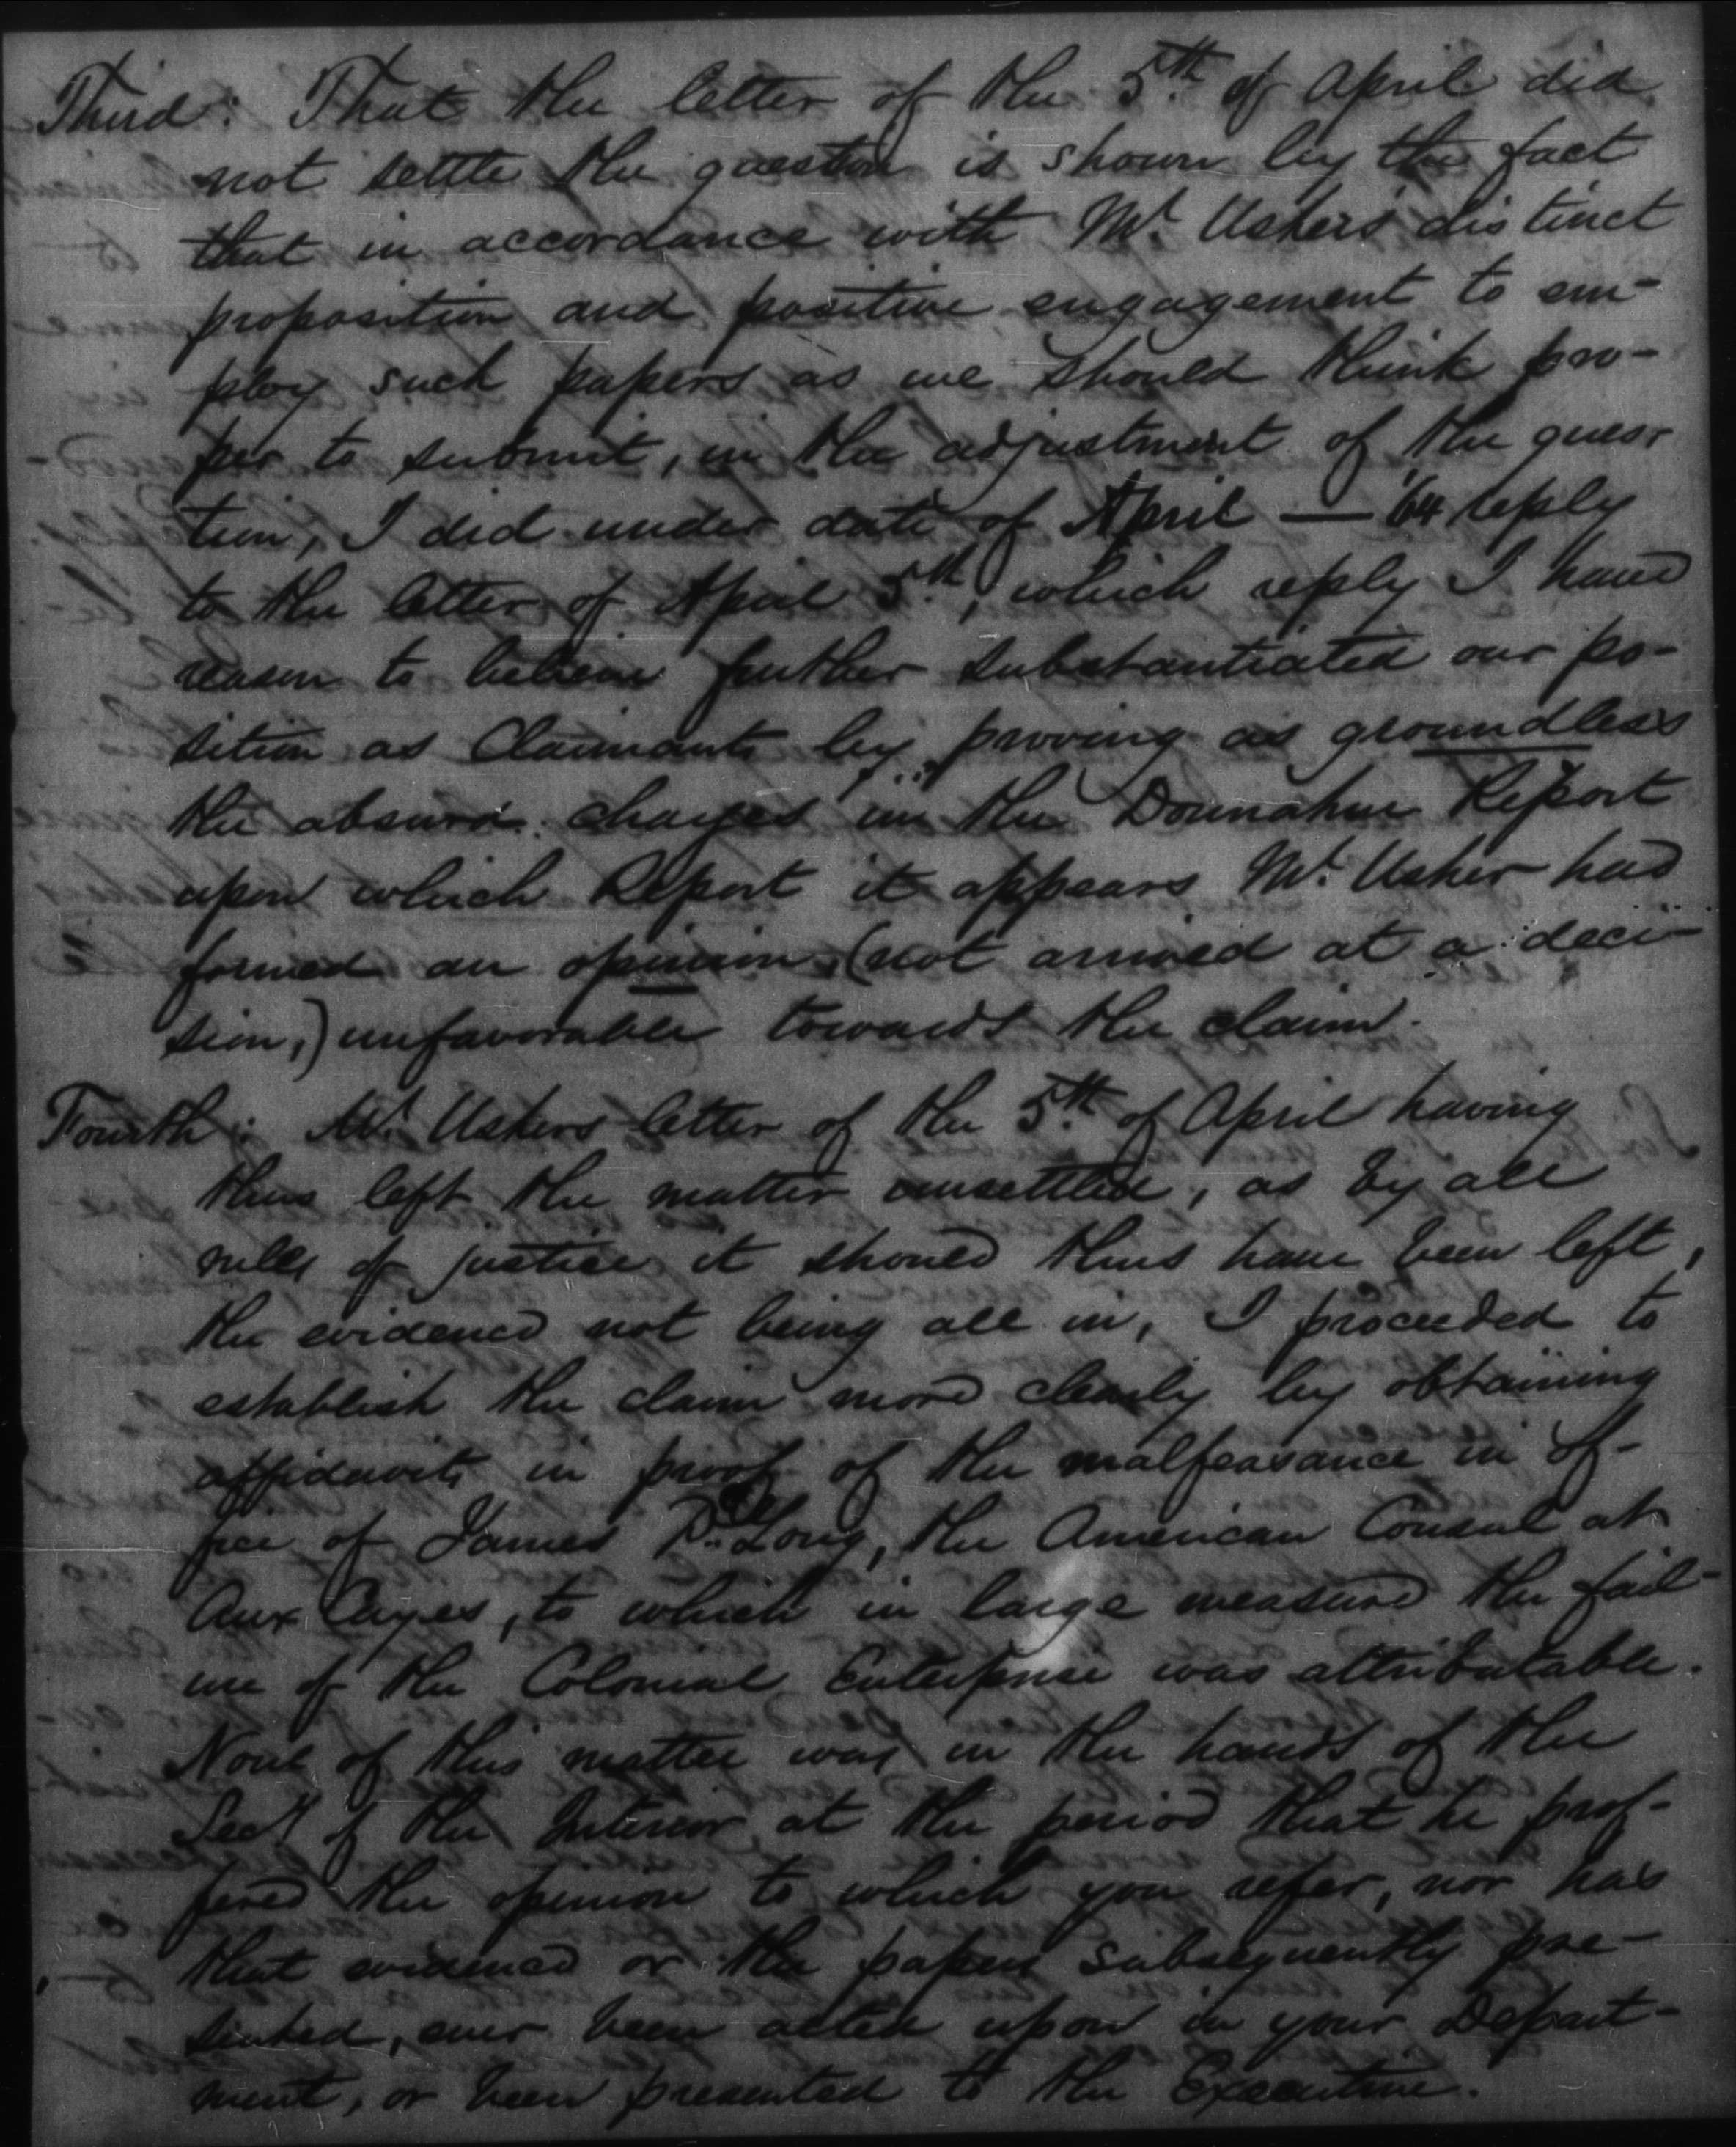 Third: That the letter of the 5th of April did
not settle the question is shown by the fact
that in accordance with Mr. Ushers distinct
proposition and positive engagement to em-
ploy such papers as we should think pro-
per to submit, in the adjustment of the ques-
tion, I did under date of April — '64 reply
to the letter of April 5th, which reply I have
reason to believe further substantiated our po-
sition as Claimants by proving as groundless
the absurd charges in the Donnahue Report
upon which Report it appears Mr. Usher had
formed an opinion, (not arrived at a deci-
sion,) unfavorable towards the claim.
Fourth: Mr. Ushers letter of the 5th of April having
thus left the matter unsettled, as by all
rules of justice it should thus have been left,
the evidence not being all in, I proceeded to
establish the claim more clearly by obtaining
affidavits in proof of the malfeasance in of-
fice of James De Long, the American Consul at
Aux Cayes, to which in large measure the fail-
ure of the Colonial Enterprise was attributable.
None of this matter was in the hands of the
Secy of the Interior at the period that he prof-
fered the opinion to which you refer, nor has
that evidence or the papers subsequently pre-
sented, ever been acted upon in your Depart-
ment, or been presented to the Executive.